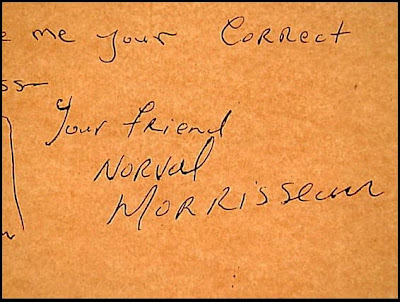 me your Correct
ss
Your friend
Norval
Morrisseau